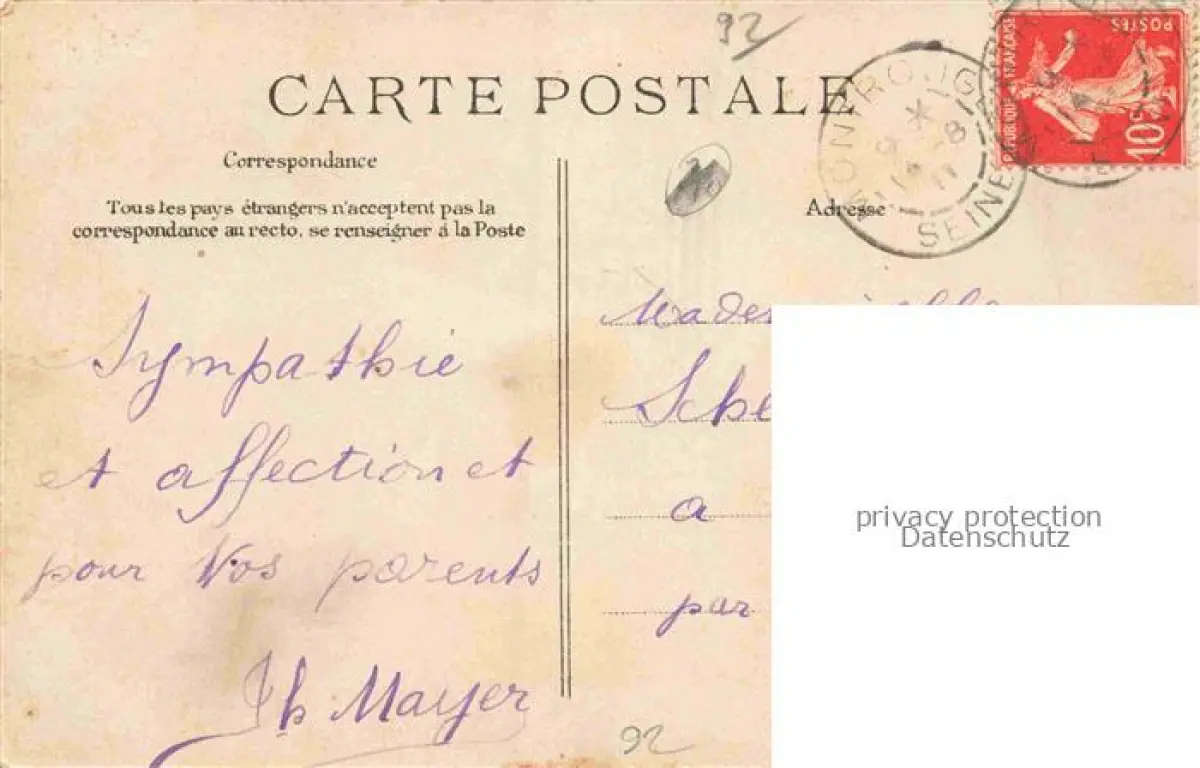 92
CARTE POSTALE
Correspondance
Tous les pays étrangers n'acceptent pas la
correspondance au recto, se renseigner à la Poste
Sympathie
et affection et
pour Vos parents
Th Mayer
92
REPUBLIQUE FRANÇAISE
POSTES
10c
MONTROUGE
SEINE
Adresse
Mademoiselle
Sche
a
par
privacy protection
Datenschutz